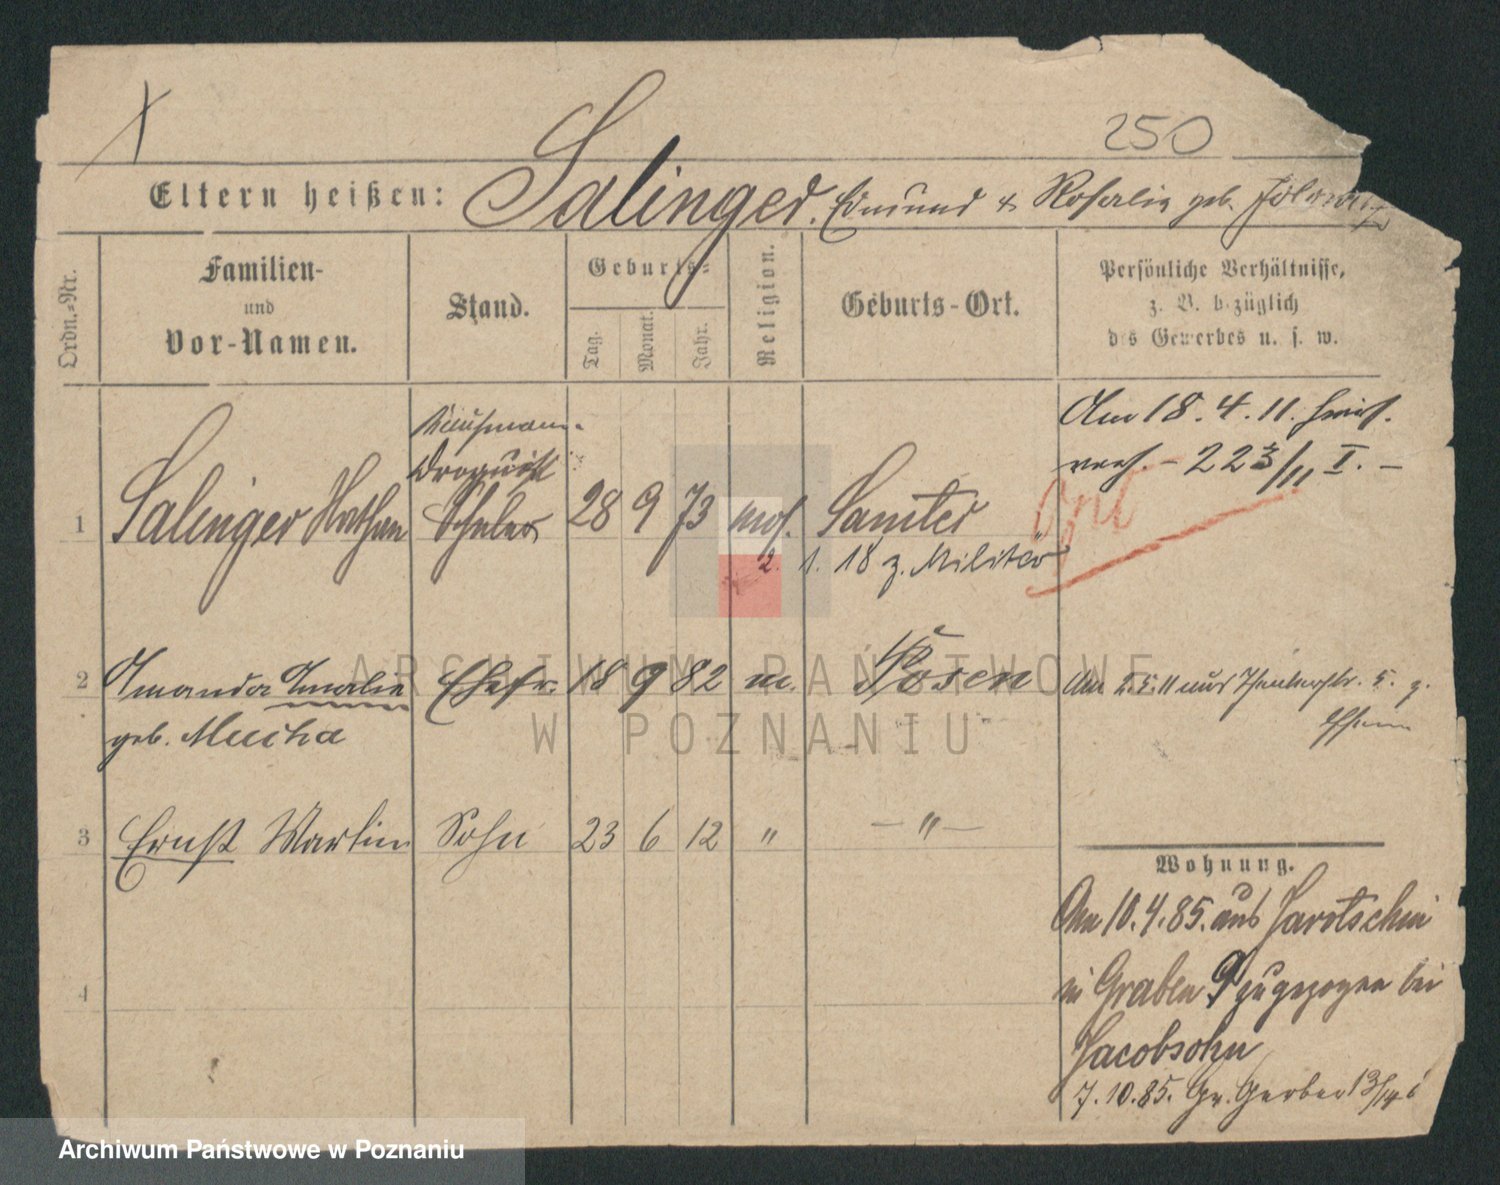 250
Eltern heißen: Salinger, Edmund & Rosalie geb.
Ordn.-Nr.
Familien-
und
Vor-Namen.
Stand.
Geburts-
Tag.
Monat.
Jahr.
Religion.
Geburts-Ort.
Persönliche Verhältnisse,
z. B. bezüglich
des Gewerbes u. s. w.
Am 18.4.11.
- 223/11 I. -
Kaufmann
Droguist
1 Salinger Nathan Schüler 28 9 73 mos. Samter
2. 1. 18 z. Militär
2 Amanda Amalie Ehefr. 18 9 82 m. Posen
geb. Mucha
Am 5.11 aus 5. z.
3 Ernst Martin Sohn 23 6 12 " — " —
4
Wohnung.
Am 10.4.85. aus Jarotschin
in Graben 9 zugezogen bei
Jacobsohn
7.10.85. Gr. Gerber 13/14
ARCHIWUM PAŃSTWOWE
W POZNANIU
Archiwum Państwowe w Poznaniu